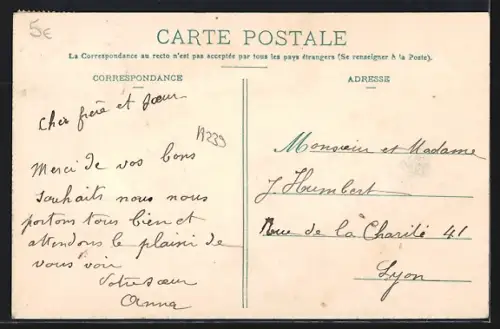 5€
CARTE POSTALE
La Correspondance au recto n'est pas acceptée par tous les pays étrangers (Se renseigner à la Poste).
CORRESPONDANCE
Cher frère et sœur
A239
Merci de vos bons
souhaits nous nous
portons tous bien et
attendons le plaisir de
vous voir
Votre sœur
Anna
ADRESSE
Monsieur et Madame
J. Humbert
Rue de la Charité 41
Lyon